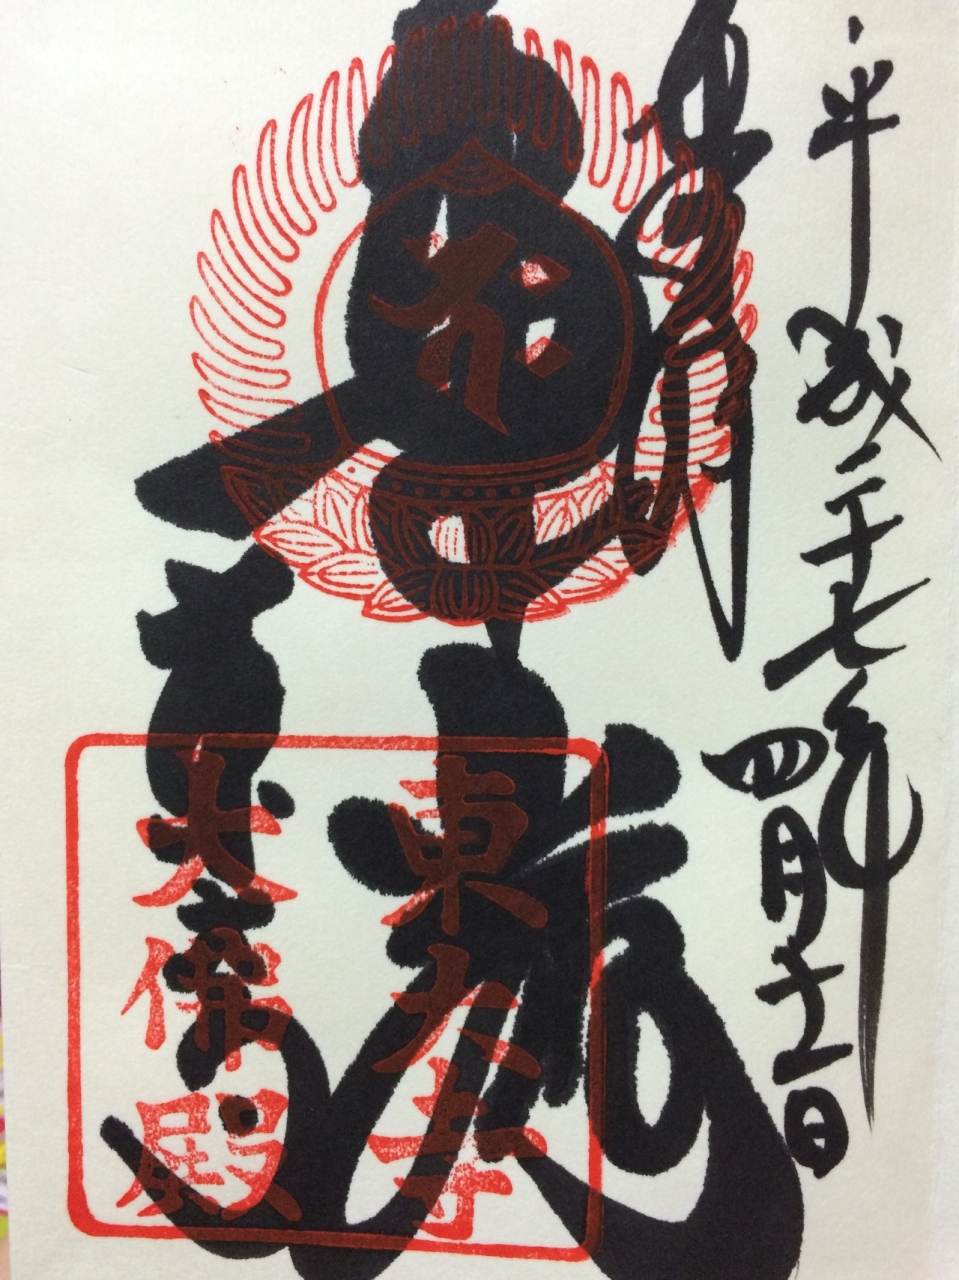 平成二十七年
四月十一日
奉拝
華嚴
東大寺
大佛殿